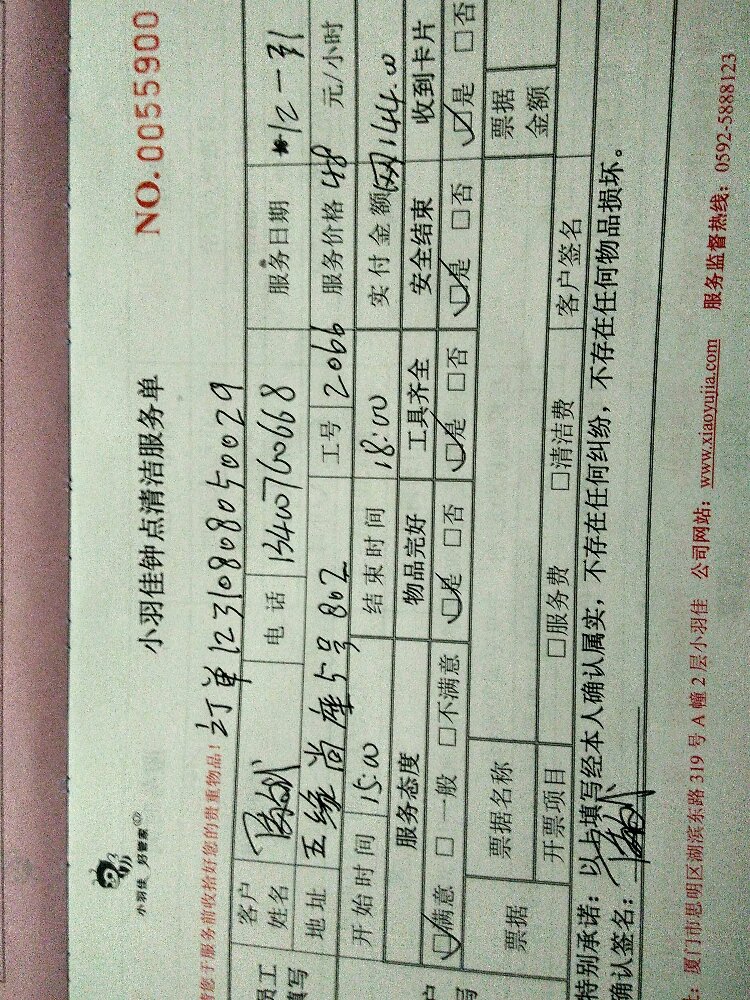 NO.0055900
小羽佳钟点清洁服务单
小羽佳 好管家
请您于服务前收拾好您的贵重物品! 订单12310808050029
员工 填写
客户姓名 电话 13400760668 服务日期 12-31
地址 五缘尚座5号802 工号 2066 服务价格 48 元/小时
开始时间 15:00 结束时间 18:00 实付金额 网144.00
服务态度 物品完好 工具齐全 安全结束 收到卡片
☑满意 □一般 □不满意 ☑是 □否 ☑是 □否 ☑是 □否 ☑是 □否
票据 票据名称 票据金额
开票项目 □服务费 □清洁费 客户签名
特别承诺: 以上填写经本人确认属实,不存在任何纠纷,不存在任何物品损坏。
确认签名:
厦门市思明区湖滨东路 319 号 A 幢 2 层小羽佳 公司网站: www.xiaoyujia.com 服务监督热线: 0592-5888123